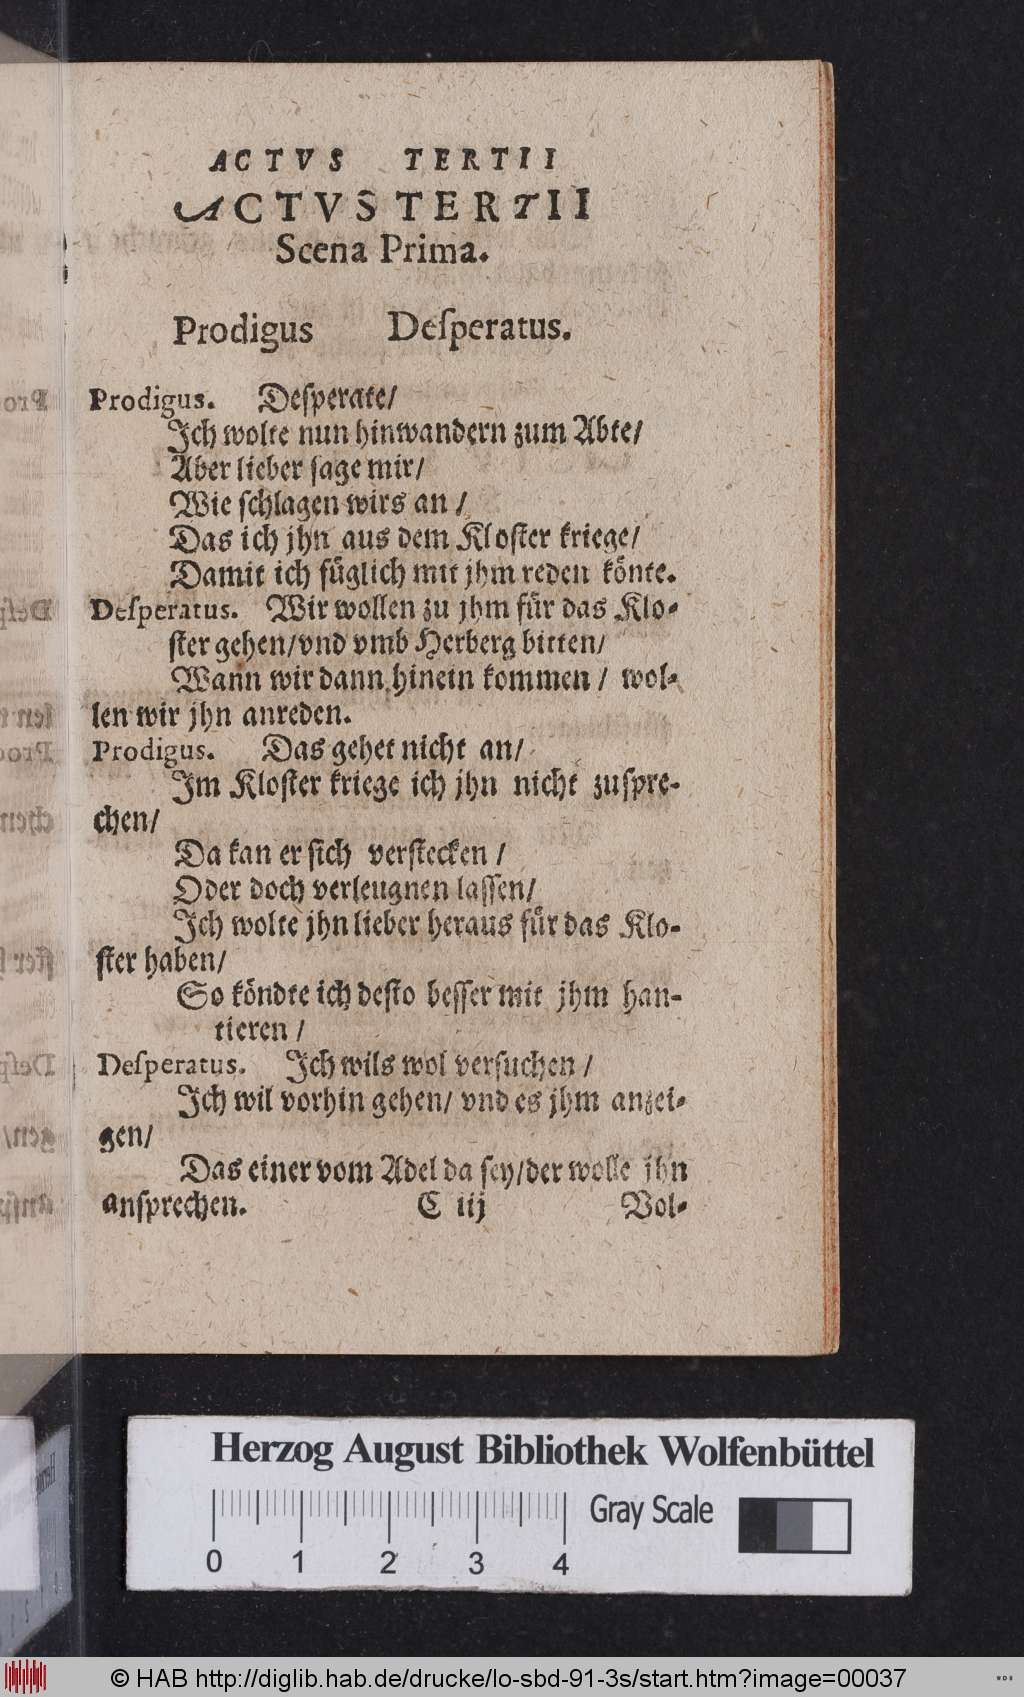 ACTVS TERTII
ACTVS TERTII
Scena Prima.
Prodigus Deſperatus.
Prodigus. Deſperate/
Ich wolte nun hinwandern zum Abte/
Aber lieber ſage mir/
Wie ſchlagen wirs an /
Das ich jhn aus dem Kloſter kriege/
Damit ich fuͤglich mit jhm reden koͤnte.
Deſperatus. Wir wollen zu jhm fuͤr das Klo⸗
ſter gehen/vnd vmb Herberg bitten/
Wann wir dann hinein kommen / wol⸗
len wir jhn anreden.
Prodigus. Das gehet nicht an/
Im Kloſter kriege ich jhn nicht zuſpre⸗
chen/
Da kan er ſich verſtecken /
Oder doch verleugnen laſſen/
Ich wolte jhn lieber heraus fuͤr das Klo⸗
ſter haben/
So koͤndte ich deſto beſſer mit jhm han⸗
tieren /
Deſperatus. Ich wils wol verſuchen /
Ich wil vorhin gehen/ vnd es jhm anzei⸗
gen/
Das einer vom Adel da ſey/der wolle jhn
anſprechen. C iij Vol⸗
Herzog August Bibliothek Wolfenbüttel
Gray Scale
0 1 2 3 4
© HAB http://diglib.hab.de/drucke/lo-sbd-91-3s/start.htm?image=00037